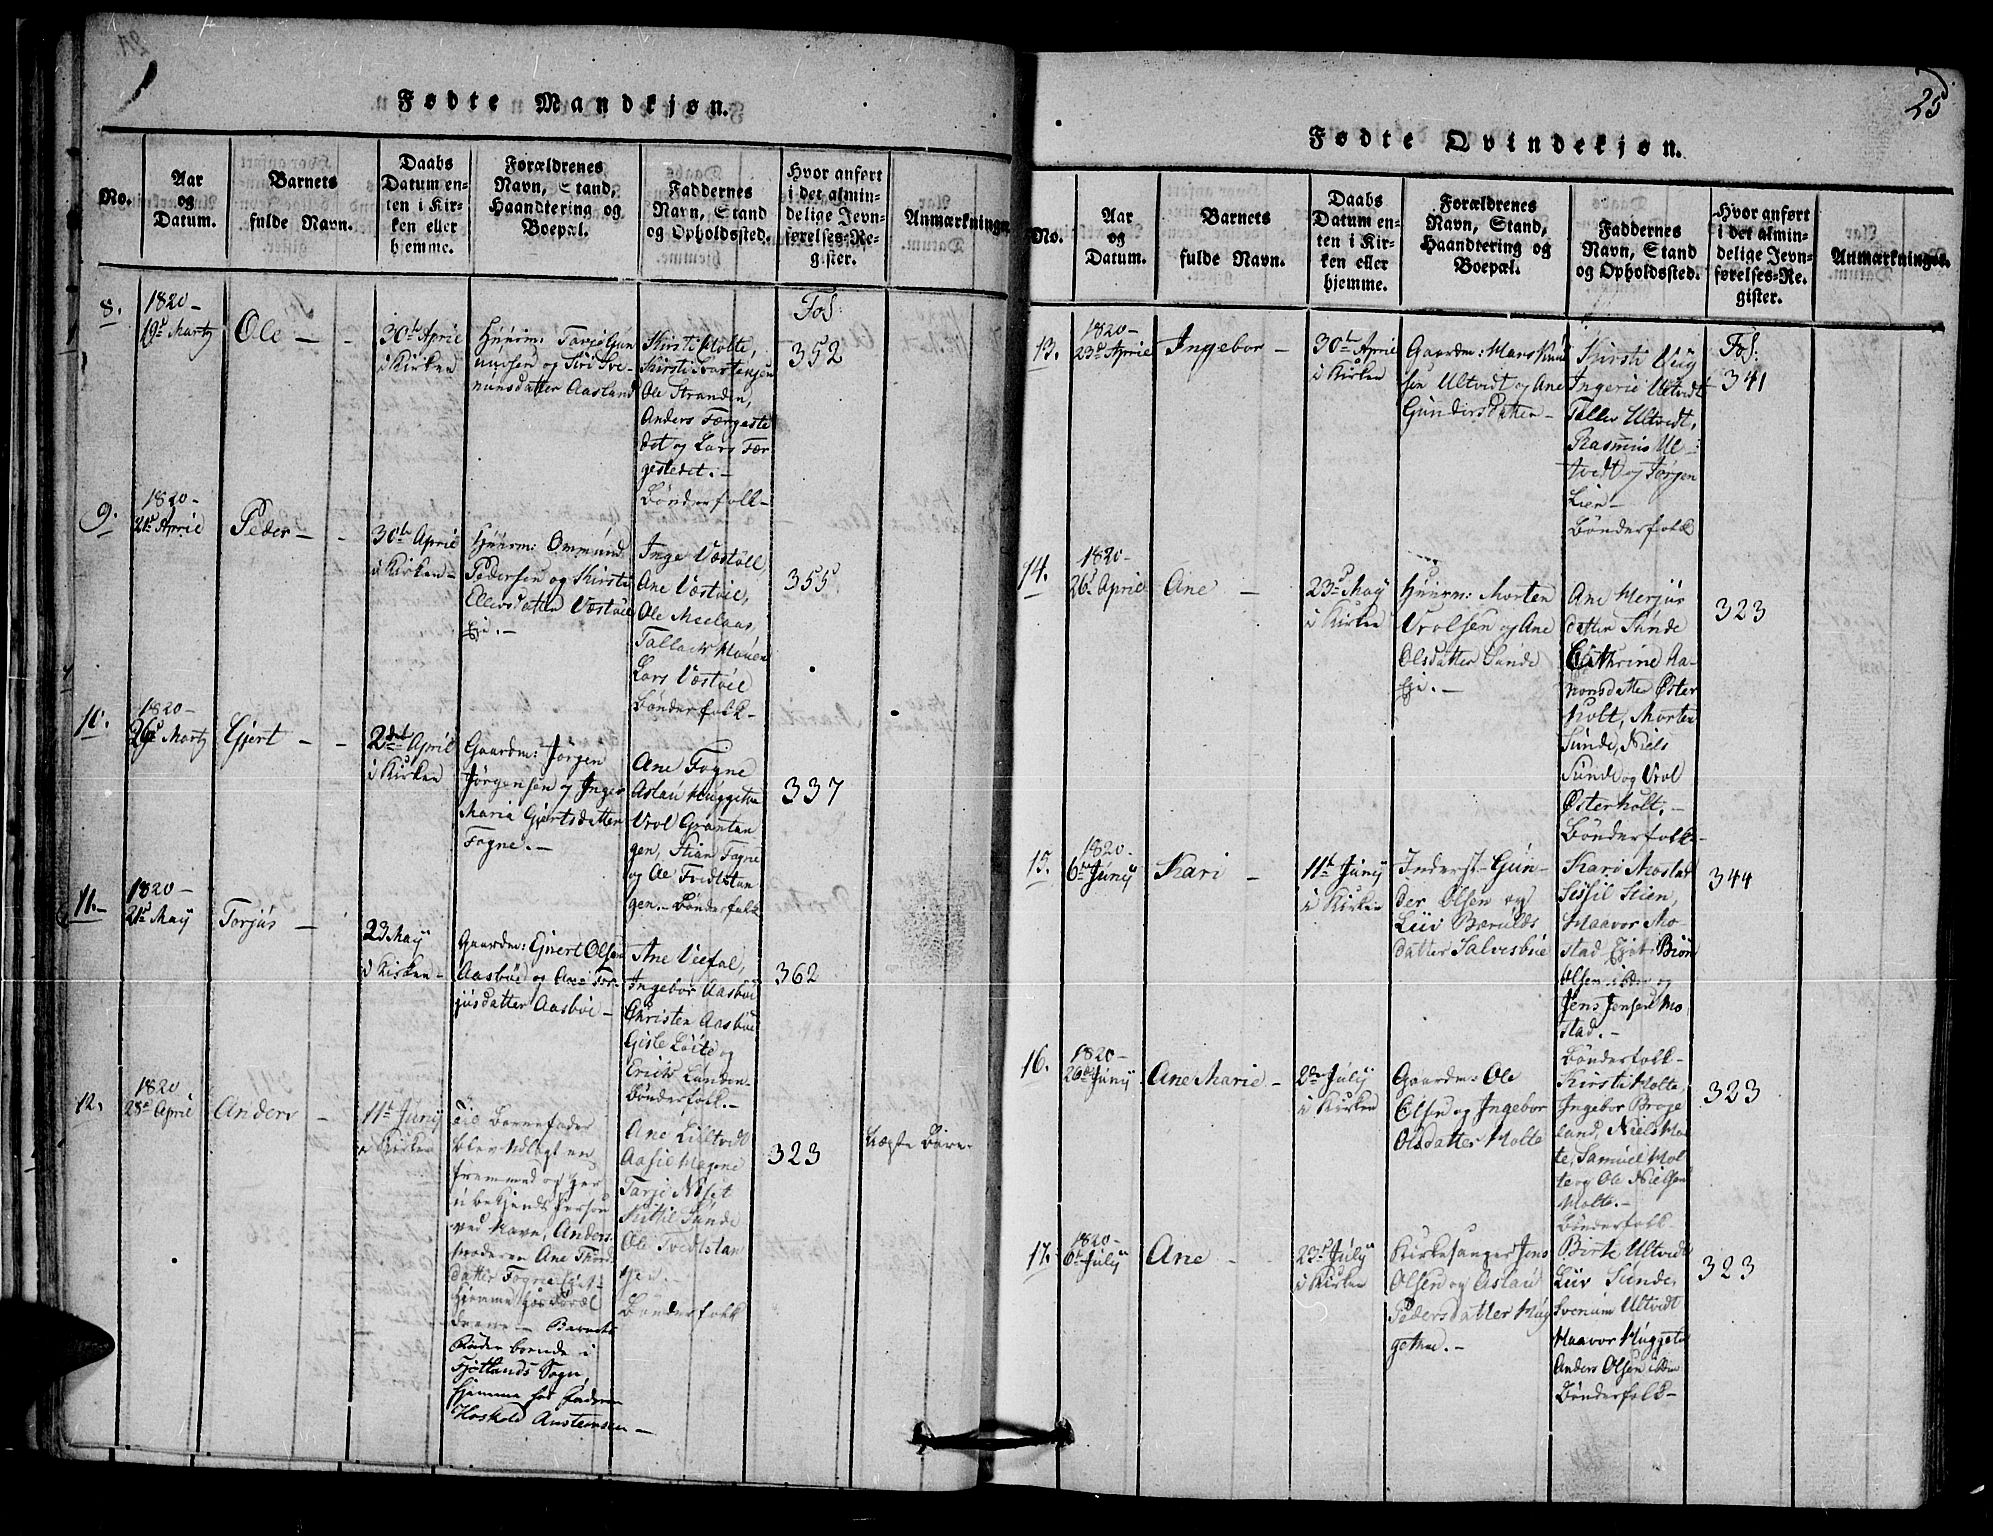 Fødte Mandkjøn.
No.
Aar
og
Datum.
Barnets
fulde Navn.
Daabs
Datum en-
ten i Kir-
ken eller
hjemme.
Forældrenes
Navn, Stand,
Haandtering og
Boepæl.
Faddernes
Navn, Stand
og Opholdssted.
Hvor anført
i det almin-
delige Jevn-
førelses-Re-
gister.
Anmærkninger
8.
1820 –
19d Martz
Ole –
30te April
i Kirken
Huusm: Tarje Gun
nuvsen og Siri Sve-
nunsdatter Aasland
Kirsti Molte,
Kirsti
Ole Stranden,
Anders Færgeste
det og Lars Fær
gestedet. –
Bønderfolk –
Fol:
352
9.
1820 –
21d April
Peder – -
30te April
i Kirken –
Huusm: Ommund
Pedersen og Kirsti
Ellevsdatter Væstøl
Eje. –
Inge Væstøll
Ane Væstøil,
Ole Meelaas,
Tallack Mouen
Lars Væstøil
Bønderfolk –
355
10.
1820 –
26d Martz
Gjert – -
2det April
i Kirken
Gaardm: Jørgen
Jørgensen og Inger
Maria Gjertsdatter
Fogne. –
Ane Fogne
Aslau Huggetve
Vrol Grantan
gen, Stian Fogne
og Ole Tvedtstan
gen. – Bønderfolk
337
11. –
1820 –
21d May
Torjus –
23 May
i Kirken –
Gaardm: Gjert Olsen
Aasbøe og Ane Tor
jusdatter Aasbøe –
Ane Veefal,
Ingebor Aasbøe
Christen Aasbøe
Gisle Løite og
Erick Lunden
Bønderfolk. –
362
12.
1820
28d April
Anders –
11te Juny
i Kirken
Til Barnefader
blev Udlagt en
fremmed og her
ubekjendt Person
ved Navn, Anders
Moderen Ane Thor
datter Fogne Eje
hjemme hos Foræl
drene – Barnets
Fader boende i
Fjotlands Sogn,
hjemme hos Faderen
Hoskold Anstensen –
Ane Lilltvedt
Aasil Mogene
Tarje Næset
Kittil Sunde
Ole Tvedtstan
gen. –
Bønderfolk
323
Uægte Barn.
25
Fødte Qvindekjøn.
No.
Aar
og
Datum.
Barnets
fulde Navn.
Daabs
Datum en-
ten i Kir-
ken eller
hjemme.
Forældrenes
Navn, Stand,
Haandtering og
Boepæl.
Faddernes
Navn, Stand
og Opholdssted.
Hvor anført
i det almin-
delige Jevn-
førelses-Re-
gister.
Anmærkninger.
13.
1820 –
23d April
Ingebor –
30te April
i Kirken
Gaardm: Mans Knud
sen Ultvedt og Ane
Gundersdatter –
Kirsti Veig
Ingerie Ultvedt
Tallev Ultvedt,
Rasmus Ul-
tvedt og Jørgen
Lien –
Bønderfolk
Fol:
341
14.
1820 –
26d April
Ane –
23d May
i Kirken
Huusm: Morten
Vrolsen og Ane
Olsdatter Sunde
Eje. –
Ane Merjus
datter Sunde
Cathrine Aa-
nonsdatter Øster
holt, Morten
Sunde, Niels
Sunde og Vrol
Østerholt, –
Bønderfolk –
323
15.
1820 –
6te Juny
Kari –
11te Juny
i Kirken
Inderst Gun-
der Olsen og
Liiv Baruldsdatter Salvesbøe
Kari Mostad
Sissil Steen,
Haavor Mo-
stad Eje: Biøn
Olsen ibdm og
Jens Jensen Mo
stad. –
Bønderfolk –
344
16.
1820 –
20de Juny
Ane Marie –
2den July
i Kirken
Gaardm: Ole
Olsen og Ingebor
Olsdatter Molte
Kirsti Molte,
Ingebor Broje
land, Niels Mol
te, Samuel Mol
te og Ole Nielsen
Molte. –
Bønderfolk –
323
17.
1820 –
6te July
Ane –
23d July
i Kirken
Kirkesanger Jens
Olsen og Aslau
Pedersdatter Hug
getvee. –
Birte Ultvedt
Liiv Sunde,
Svenum Ultvedt
Haavor Huggetve
Anders Olsen ibdm
Bønderfolk –
323